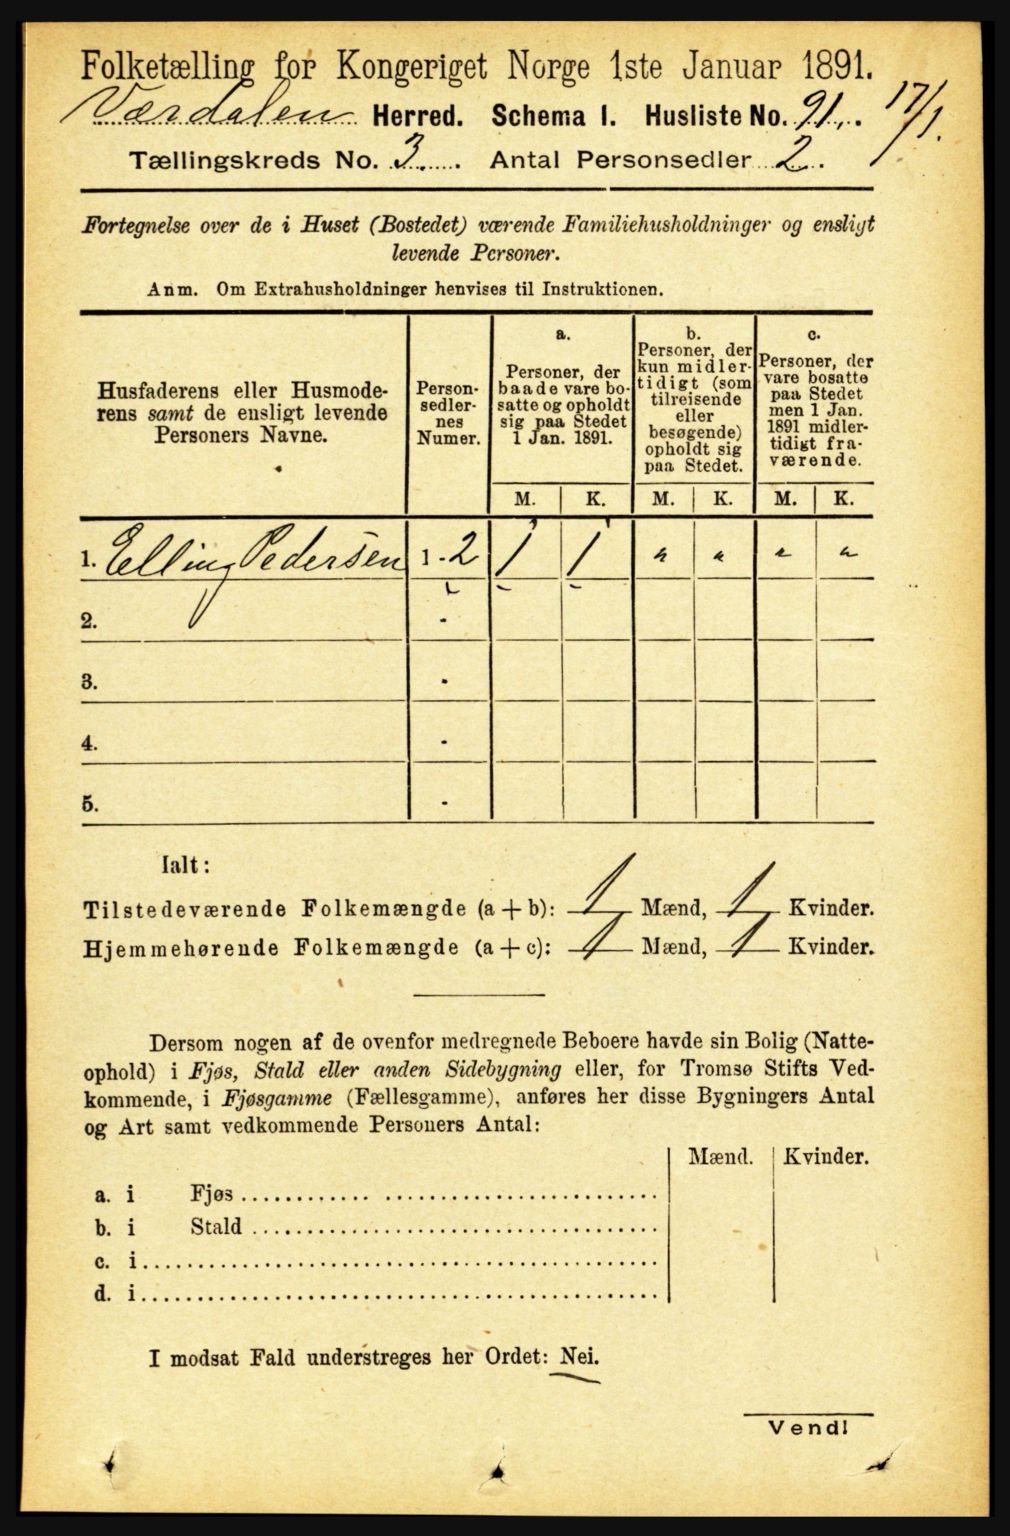 Folketælling for Kongeriget Norge 1ste Januar 1891.
Værdalen Herred. Schema I. Husliste No. 91. 17/1.
Tællingskreds No. 3. Antal Personsedler 2.
Fortegnelse over de i Huset (Bostedet) værende Familiehusholdninger og ensligt
levende Personer.
Anm. Om Extrahusholdninger henvises til Instruktionen.
Husfaderens eller Husmode-
rens samt de ensligt levende
Personers Navne.
Person-
sedler-
nes
Numer.
a.
Personer, der
baade vare bo-
satte og opholdt
sig paa Stedet
1 Jan. 1891.
b.
Personer, der
kun midler-
tidigt (som
tilreisende
eller
besøgende)
opholdt sig
paa Stedet.
c.
Personer, der
vare bosatte
paa Stedet
men 1 Jan.
1891 midler-
tidigt fra-
værende.
M. K. M. K. M. K.
1. Elling Pedersen 1 - 2 1 1 " " " "
2. -
3. -
4. -
5. -
Ialt:
Tilstedeværende Folkemængde (a + b): 1 Mænd, 1 Kvinder.
Hjemmehørende Folkemængde (a + c): 1 Mænd, 1 Kvinder.
Dersom nogen af de ovenfor medregnede Beboere havde sin Bolig (Natte-
ophold) i Fjøs, Stald eller anden Sidebygning eller, for Tromsø Stifts Ved-
kommende, i Fjøsgamme (Fællesgamme), anføres her disse Bygningers Antal
og Art samt vedkommende Personers Antal:
Mænd. Kvinder.
a. i Fjøs
b. i Stald
c. i
d. i
I modsat Fald understreges her Ordet: Nei.
Vend!